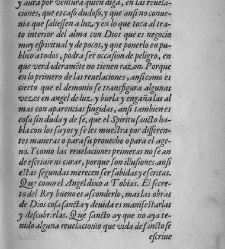 y aura por ventura quien diga, en las reuela-
ciones, que es cosa dudosa, y que ansi no conue-
nia que saliessen a luz, y en lo que toca al tra-
to interior del alma con Dios que es negocio
muy espiritual y de pocos, y que ponerlo en pu-
blico a todo, podra ser ocasion de peligro, en
que verdaderamẽte no tienen razon. Porque
en lo primero de las reuelaciones, ansi como es
cierto que el demonio se transfigura algunas
vezes en angel de luz, y burla y engaña las al
mas con apariencias fingidas, ansi tambien es
cosa sin duda y de fe, que el Spiritu sancto ha-
bla con los sayos y se les muestra por differen-
tes maneras o para su prouecho o para el age-
no. Y como las reuelaciones primeras no se an
de escriuir ni curar, porque son illusiones ansi
estas segundas merecen ser sabidas y escritas.
Que como el Angel dixo a Tobias. El secre-
to del Rey bueno es asconderlo, mas las obras
de Dios cosa sancta y deuida es manifestarlas
y descubrirlas. Que sancto ay que no aya te-
nido alguna reuelacion o que vida de sancto se
escriue